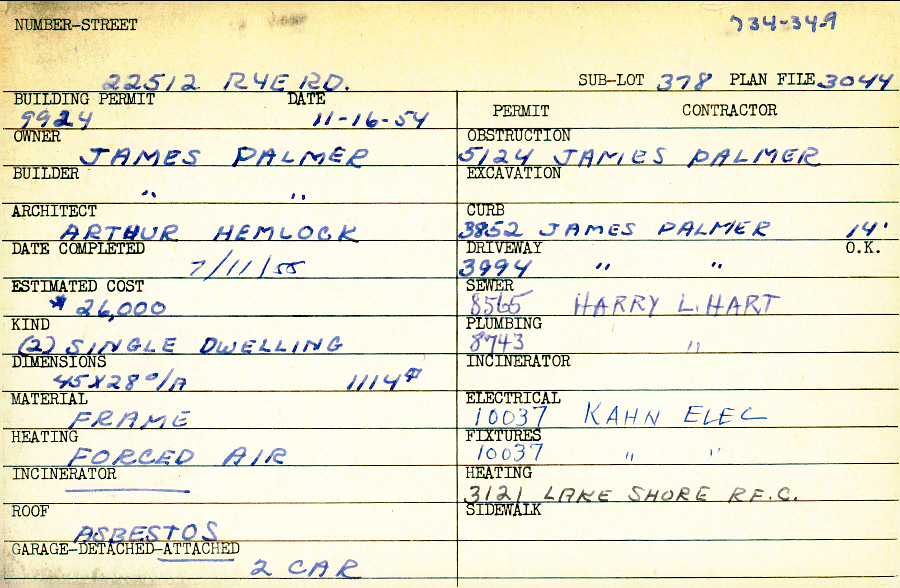 NUMBER-STREET
734-34-9
22512 RYE RD.
SUB-LOT 378 PLAN FILE 3044
BUILDING PERMIT DATE
9924 11-16-54
OWNER
JAMES PALMER
BUILDER
" "
ARCHITECT
ARTHUR HEMLOCK
DATE COMPLETED
7/11/55
ESTIMATED COST
26,000
KIND
(2) SINGLE DWELLING
DIMENSIONS
45X28 O/A 1114
MATERIAL
FRAME
HEATING
FORCED AIR
INCINERATOR
ROOF
ASBESTOS
GARAGE-DETACHED-ATTACHED
2 CAR
PERMIT CONTRACTOR
OBSTRUCTION
5124 JAMES PALMER
EXCAVATION
CURB
3852 JAMES PALMER 14'
DRIVEWAY O.K.
3994 " "
SEWER
8565 HARRY L. HART
PLUMBING
8743 "
INCINERATOR
ELECTRICAL
10037 KAHN ELEC
FIXTURES
10037 " "
HEATING
3121 LAKE SHORE R.F.C.
SIDEWALK